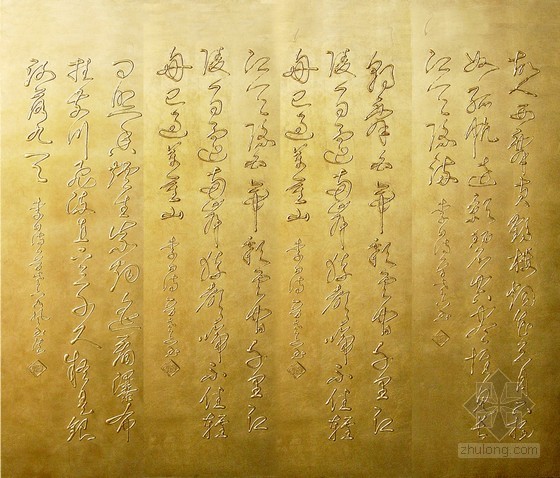 故人西辞黄鹤楼烟花三月下扬
州孤帆远影碧空尽惟见长
江天际流
李白诗
朝辞白帝彩云间千里江
陵一日还两岸猿声啼不住轻
舟已过万重山
李白诗
辞白帝彩云间千里江
陵一日还两岸猿声啼不住轻
舟已过万重山
李白诗
日照香炉生紫烟遥看瀑布
挂前川飞流直下三千尺疑是银
河落九天
李白诗
zhulong.com